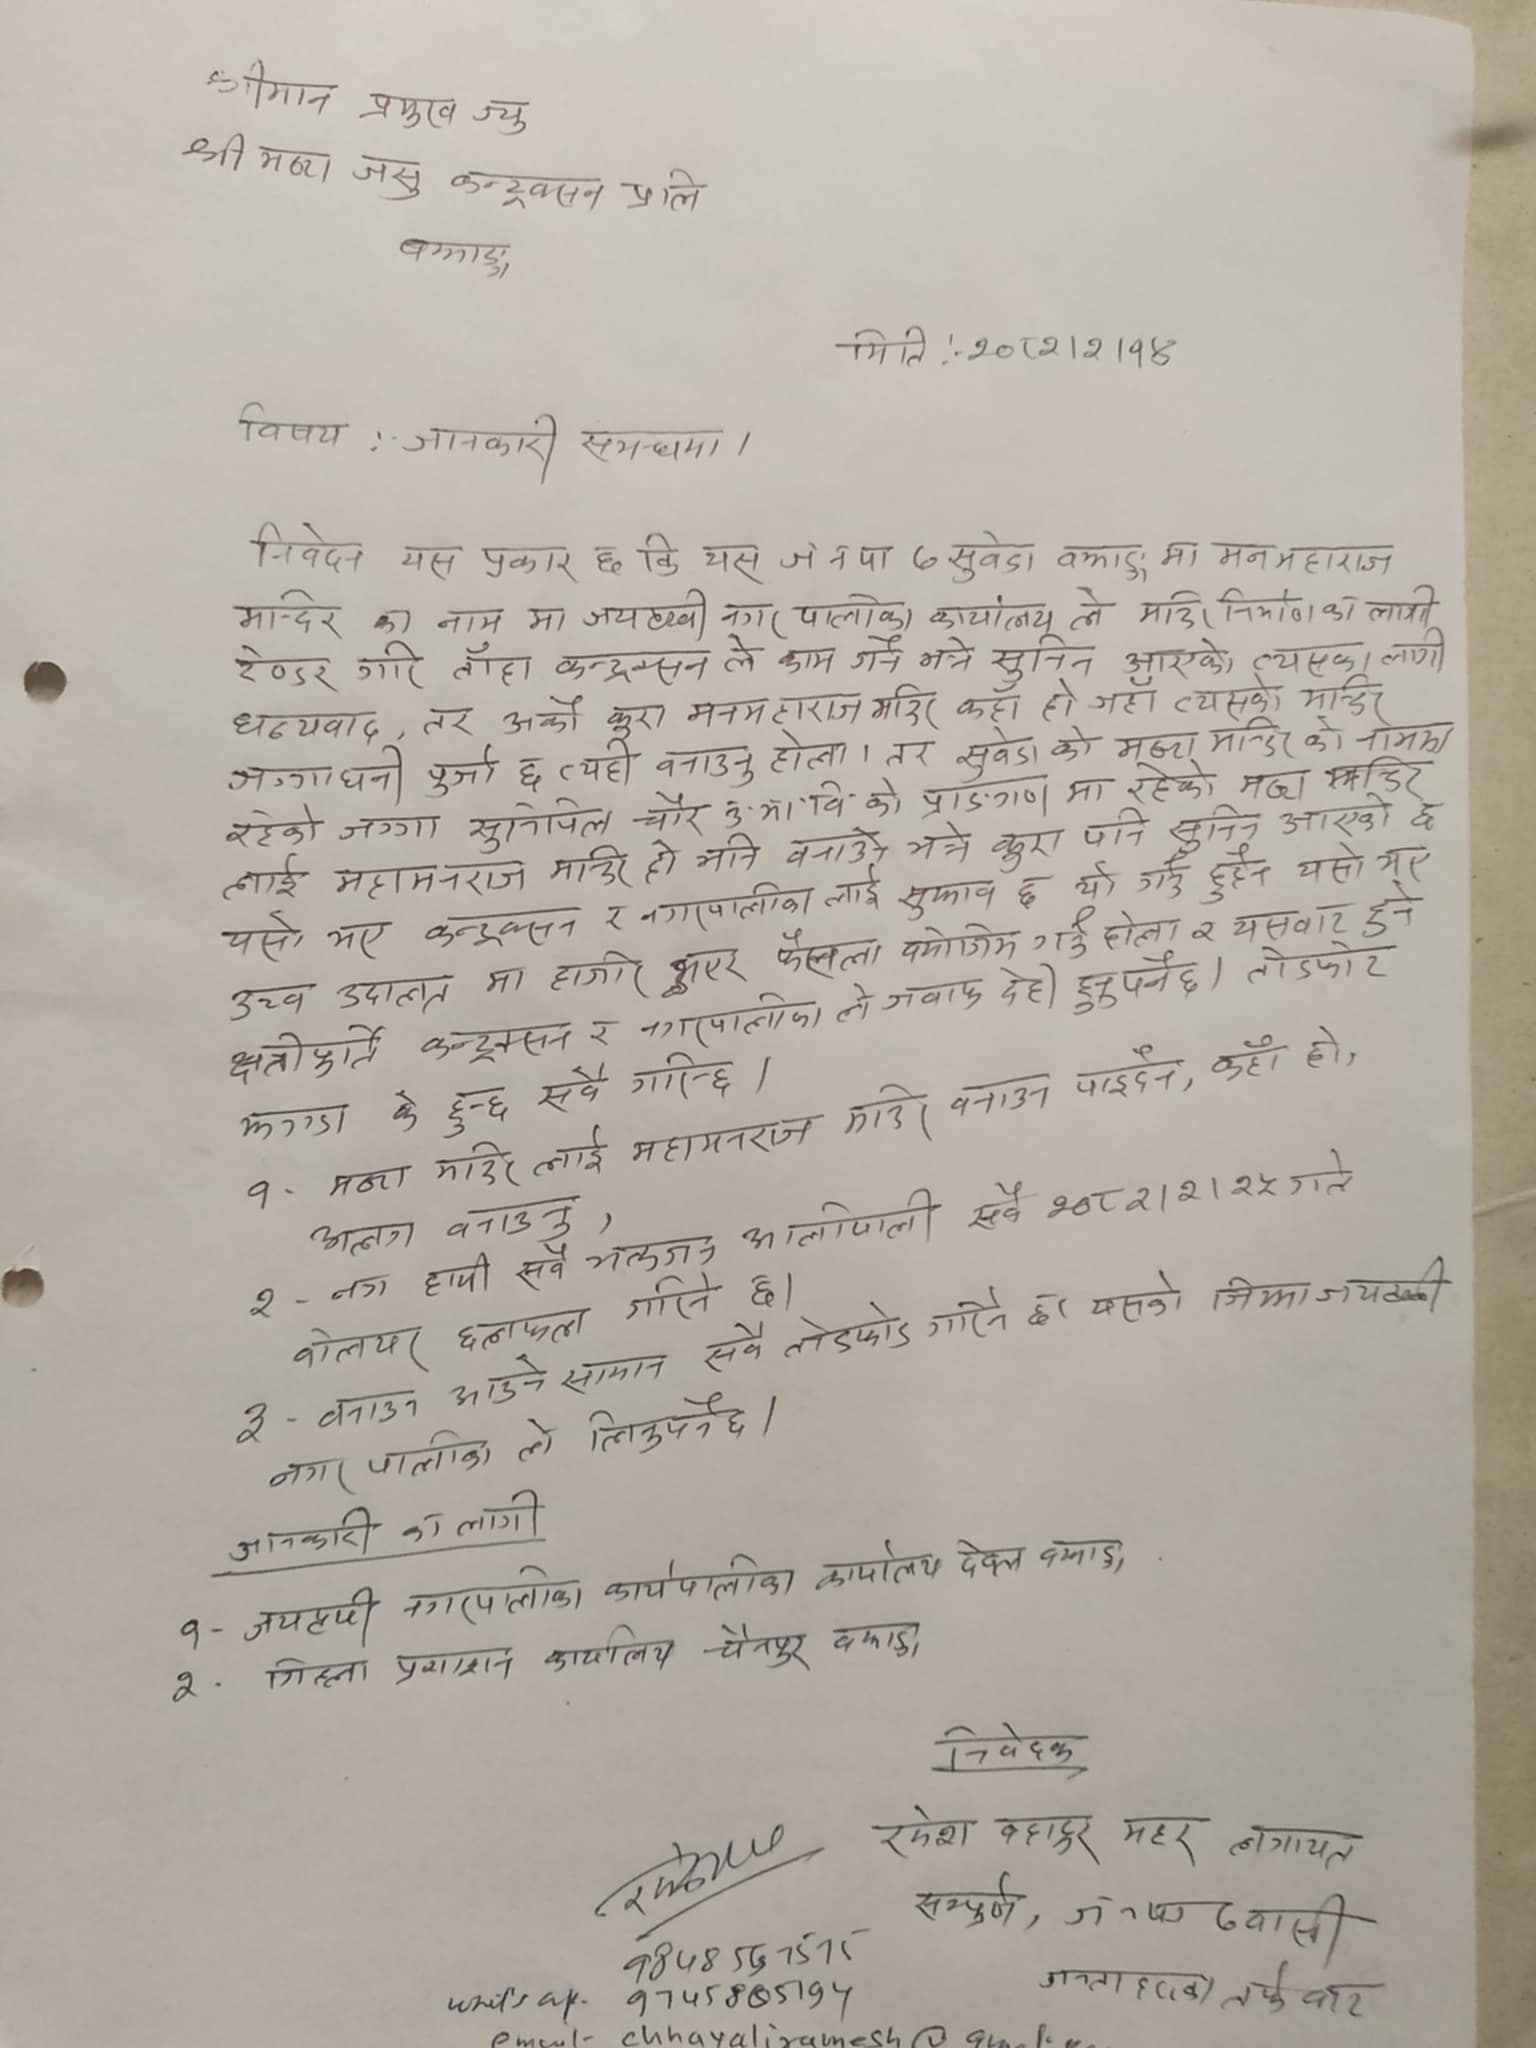 श्रीमान प्रमुख ज्यु
श्री मष्टा जसु कन्ट्रक्सन प्रालि
बझाङ्ग
मिति :- २०८२।२।१४
विषय :- जानकारी सम्वन्धमा।
निवेदन यस प्रकार छ कि यस ज न पा ७ सुवेडा वझाङ्ग मा मनमहाराज
मन्दिर का नाम मा जयपृथ्वी नगरपालीका कार्यालय ले मन्दिर निर्माण का लागी
टेण्डर गरि ताँहा कन्ट्रक्सन ले काम गर्ने भन्ने सुनिन आएको त्यसका लागी
धन्यवाद, तर अर्को कुरा मनमहाराज मन्दिर कहाँ हो जहाँ त्यसको मन्दिर
जग्गाधनी पुर्जा छ त्यही वनाउनु होला। तर सुवेडा को मष्टा मन्दिर को नाममा
रहेको जग्गा चौर उ.मा.वि को प्राङगण मा रहेको मष्टा मन्दिर
लाई महामनराज मन्दिर हो भनि वनाउने भन्ने कुरा पनि सुनिन आएको छ
यसो भए कन्ट्रक्सन र नगरपालीका लाई सुझाव छ यो गर्नु हुदैन यसो भए
उच्च अदालत मा हाजीर भएर फैसला वमोजिम गर्नु होला र यसवाट हुने
क्षतीपुर्ति कन्ट्रक्सन र नगरपालीका ले जवाफ देही हुनुपर्नेछ। तोडफोट
झगडा के हुन्छ सवै गरिन्छ।
१- मष्टा मन्दिर लाई महामनराज मन्दिर वनाउन पाइदैन, कहाँ हो,
अलग वनाउनु,
२ - हामी सवै भक्तजन आलीपाली सवै २०८२।२।२५ गते
वोलाएर छलफल गरिने छ।
३ - वनाउन आउने सामान सवै तोडफोड गरिने छ। यसको जिम्मा जयपृथ्वी
नगरपालीका ले लिनुपर्नेछ।
जानकारी का लागी
१- जयपृथ्वी नगरपालीका कार्यपालीका कार्यालय देवल वझाङ्ग
२. जिल्ला प्रशासन कार्यालय चैनपुर वझाङ्ग
निवेदक
रमेश वहादुर महर लगायत
सम्पुर्ण, ज न पा ७ वासी
तर्फ वाट
9745865194
email- chhayaliramesh@